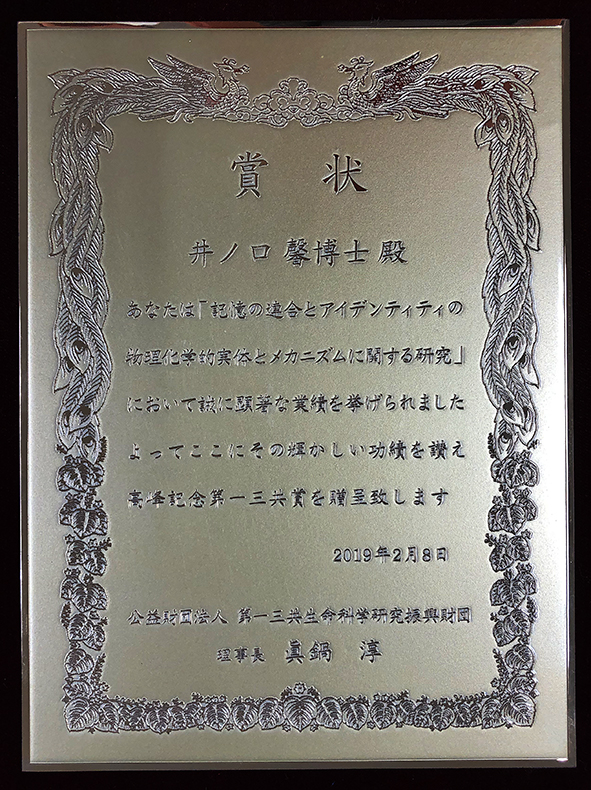 賞 状
井ノ口 馨博士 殿
あなたは「記憶の連合とアイデンティティの
物理化学的実体とメカニズムに関する研究」
において誠に顕著な業績を挙げられました
よってここにその輝かしい功績を讃え
高峰記念第一三共賞を贈呈致します
2019年2月8日
公益財団法人 第一三共生命科学研究振興財団
理事長 眞鍋 淳